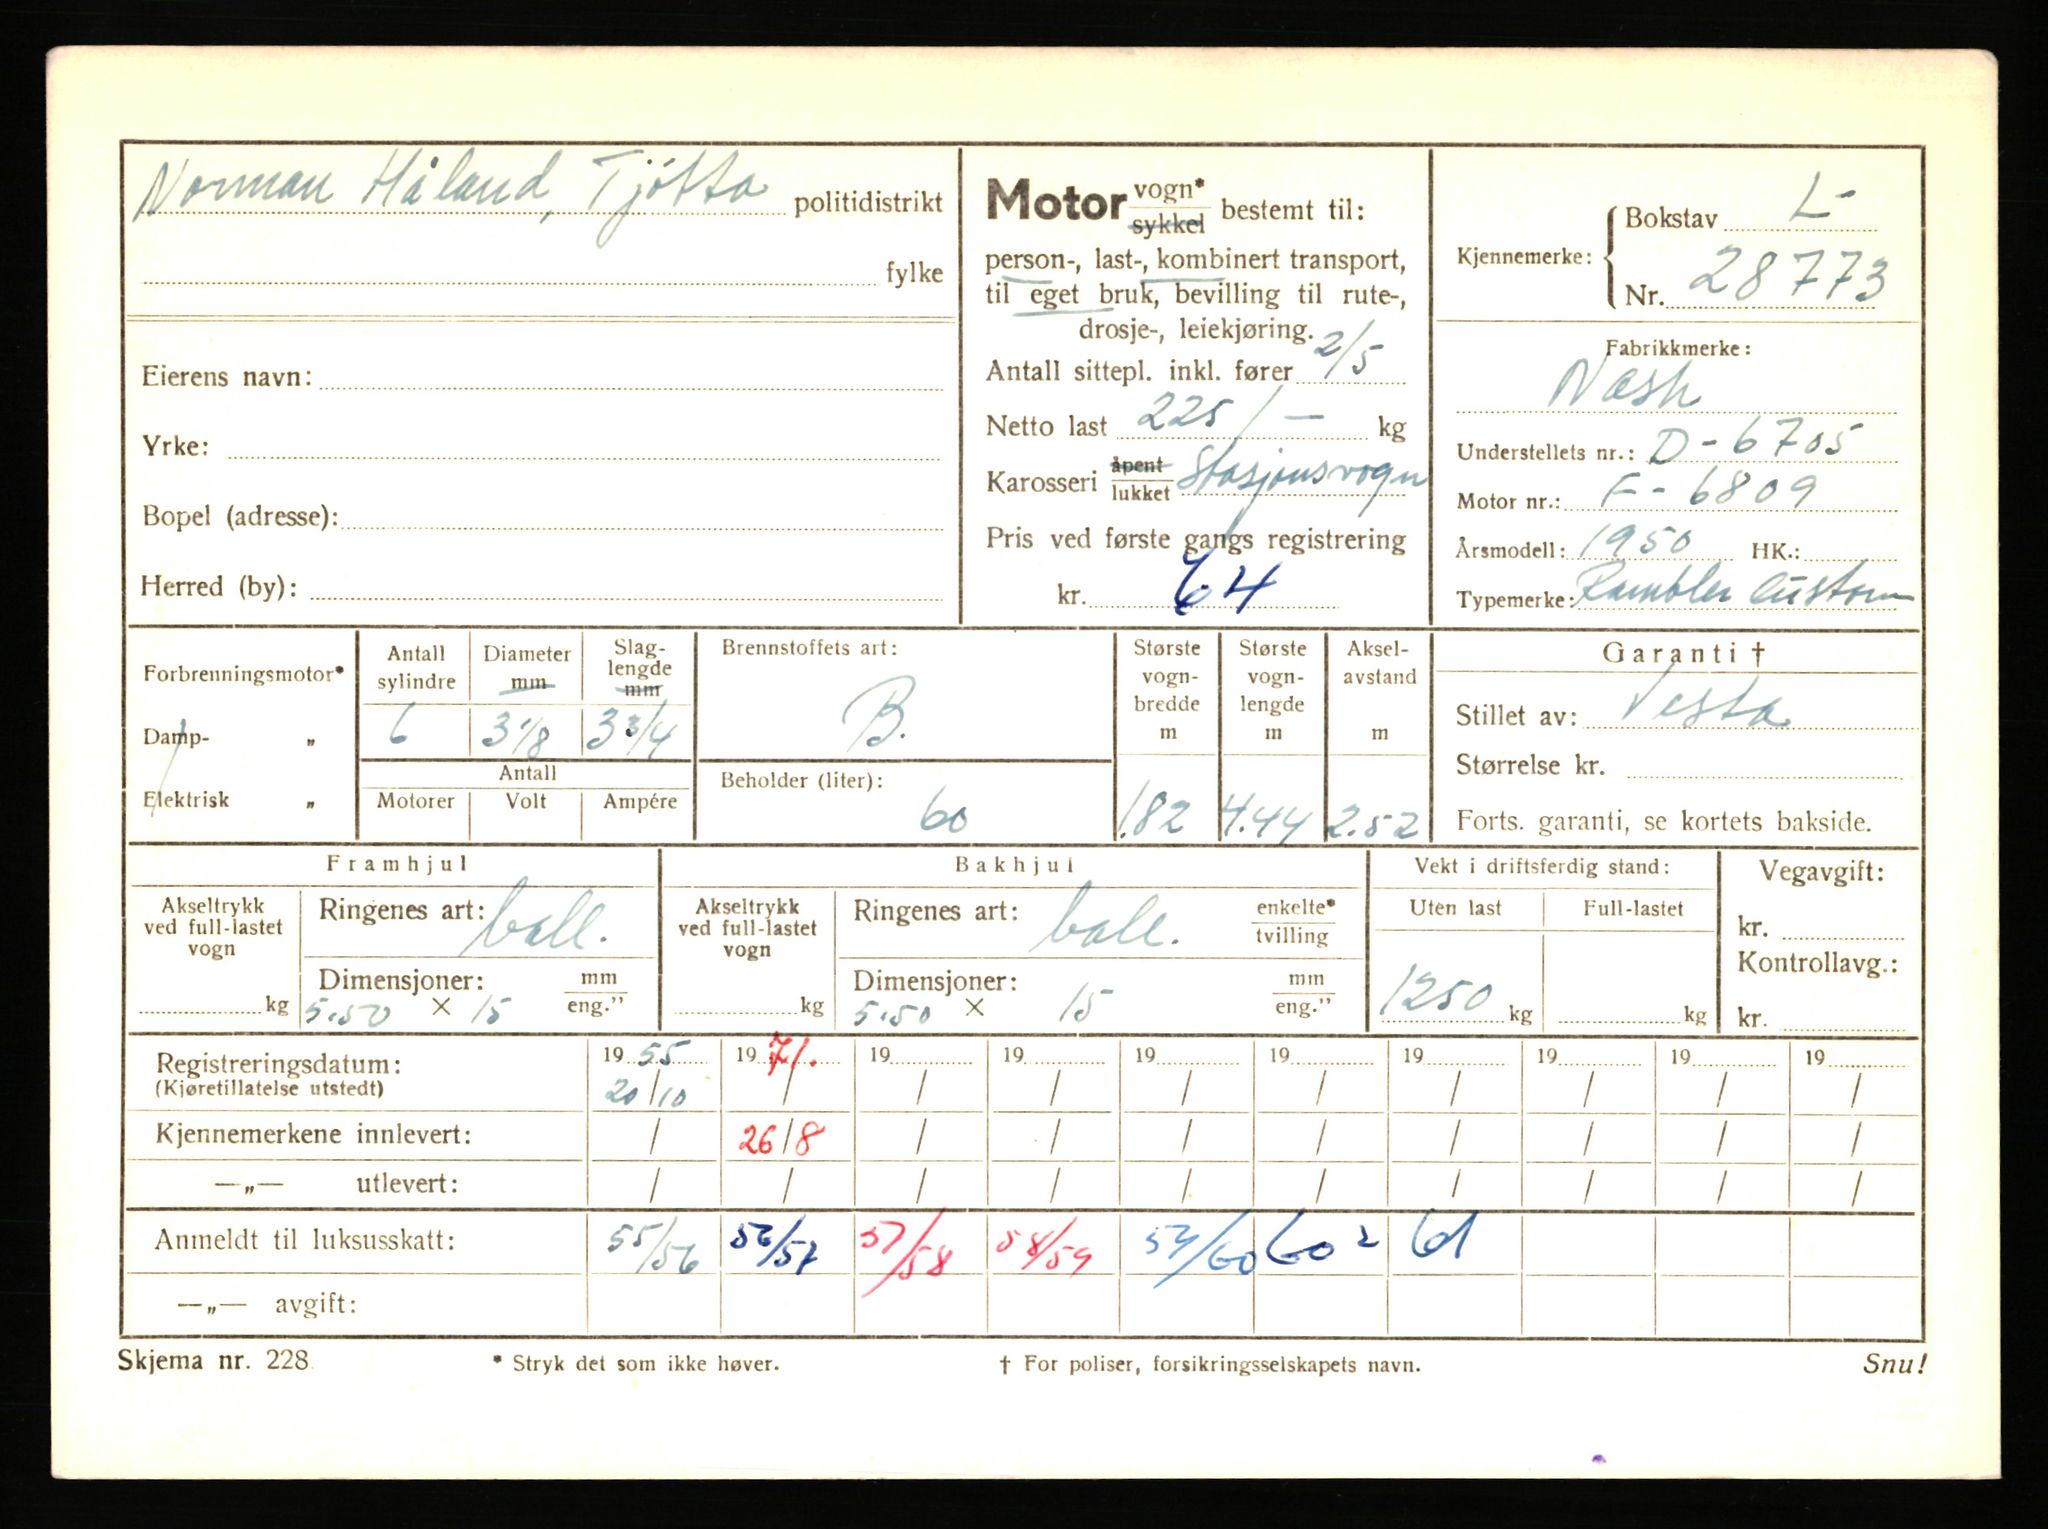 Norman Håland, Tjøtta politidistrikt
fylke
Eierens navn:
Yrke:
Bopel (adresse):
Herred (by):
Motor vogn* sykkel bestemt til:
person-, last-, kombinert transport,
til eget bruk, bevilling til rute-,
drosje-, leiekjøring.
Antall sittepl. inkl. fører 2/5
Netto last 225/- kg
Karosseri åpent lukket Stasjonsvogn
Pris ved første gangs registrering
kr. 64
Kjennemerke: Bokstav L-
Nr. 28773
Fabrikkmerke:
Nash
Understellets nr.: D-6705
Motor nr.: F-6809
Årsmodell: 1950 HK.:
Typemerke: Rambler Custom
Forbrenningsmotor*
Damp- „
Elektrisk „
Antall sylindre Diameter mm Slag-lengde mm
6 3 1/8 3 3/4
Antall
Motorer Volt Ampére
Brennstoffets art:
B.
Beholder (liter):
60
Største vogn-bredde m
1.82
Største vogn-lengde m
4.44
Aksel-avstand m
2.52
Garanti †
Stillet av: Vesta
Størrelse kr.
Forts. garanti, se kortets bakside.
Framhjul
Akseltrykk ved full-lastet vogn
kg
Ringenes art: ball.
Dimensjoner: mm eng."
5.50 × 15
Bakhjul
Akseltrykk ved full-lastet vogn
kg
Ringenes art: ball. enkelte* tvilling
Dimensjoner: mm eng."
5.50 × 15
Vekt i driftsferdig stand:
Uten last Full-lastet
1250 kg kg
Vegavgift:
kr.
Kontrollavg.:
kr.
Registreringsdatum: 19 55 19 71. 19 19 19 19 19 19 19 19
(Kjøretillatelse utstedt) 20/10 / / / / / / / / /
Kjennemerkene innlevert: / 26/8 / / / / / / / /
—„— utlevert: / / / / / / / / / /
Anmeldt til luksusskatt: 55/56 56/57 57/58 58/59 59/60 60 2 61
—„— avgift:
Skjema nr. 228 * Stryk det som ikke høver. † For poliser, forsikringsselskapets navn. Snu!